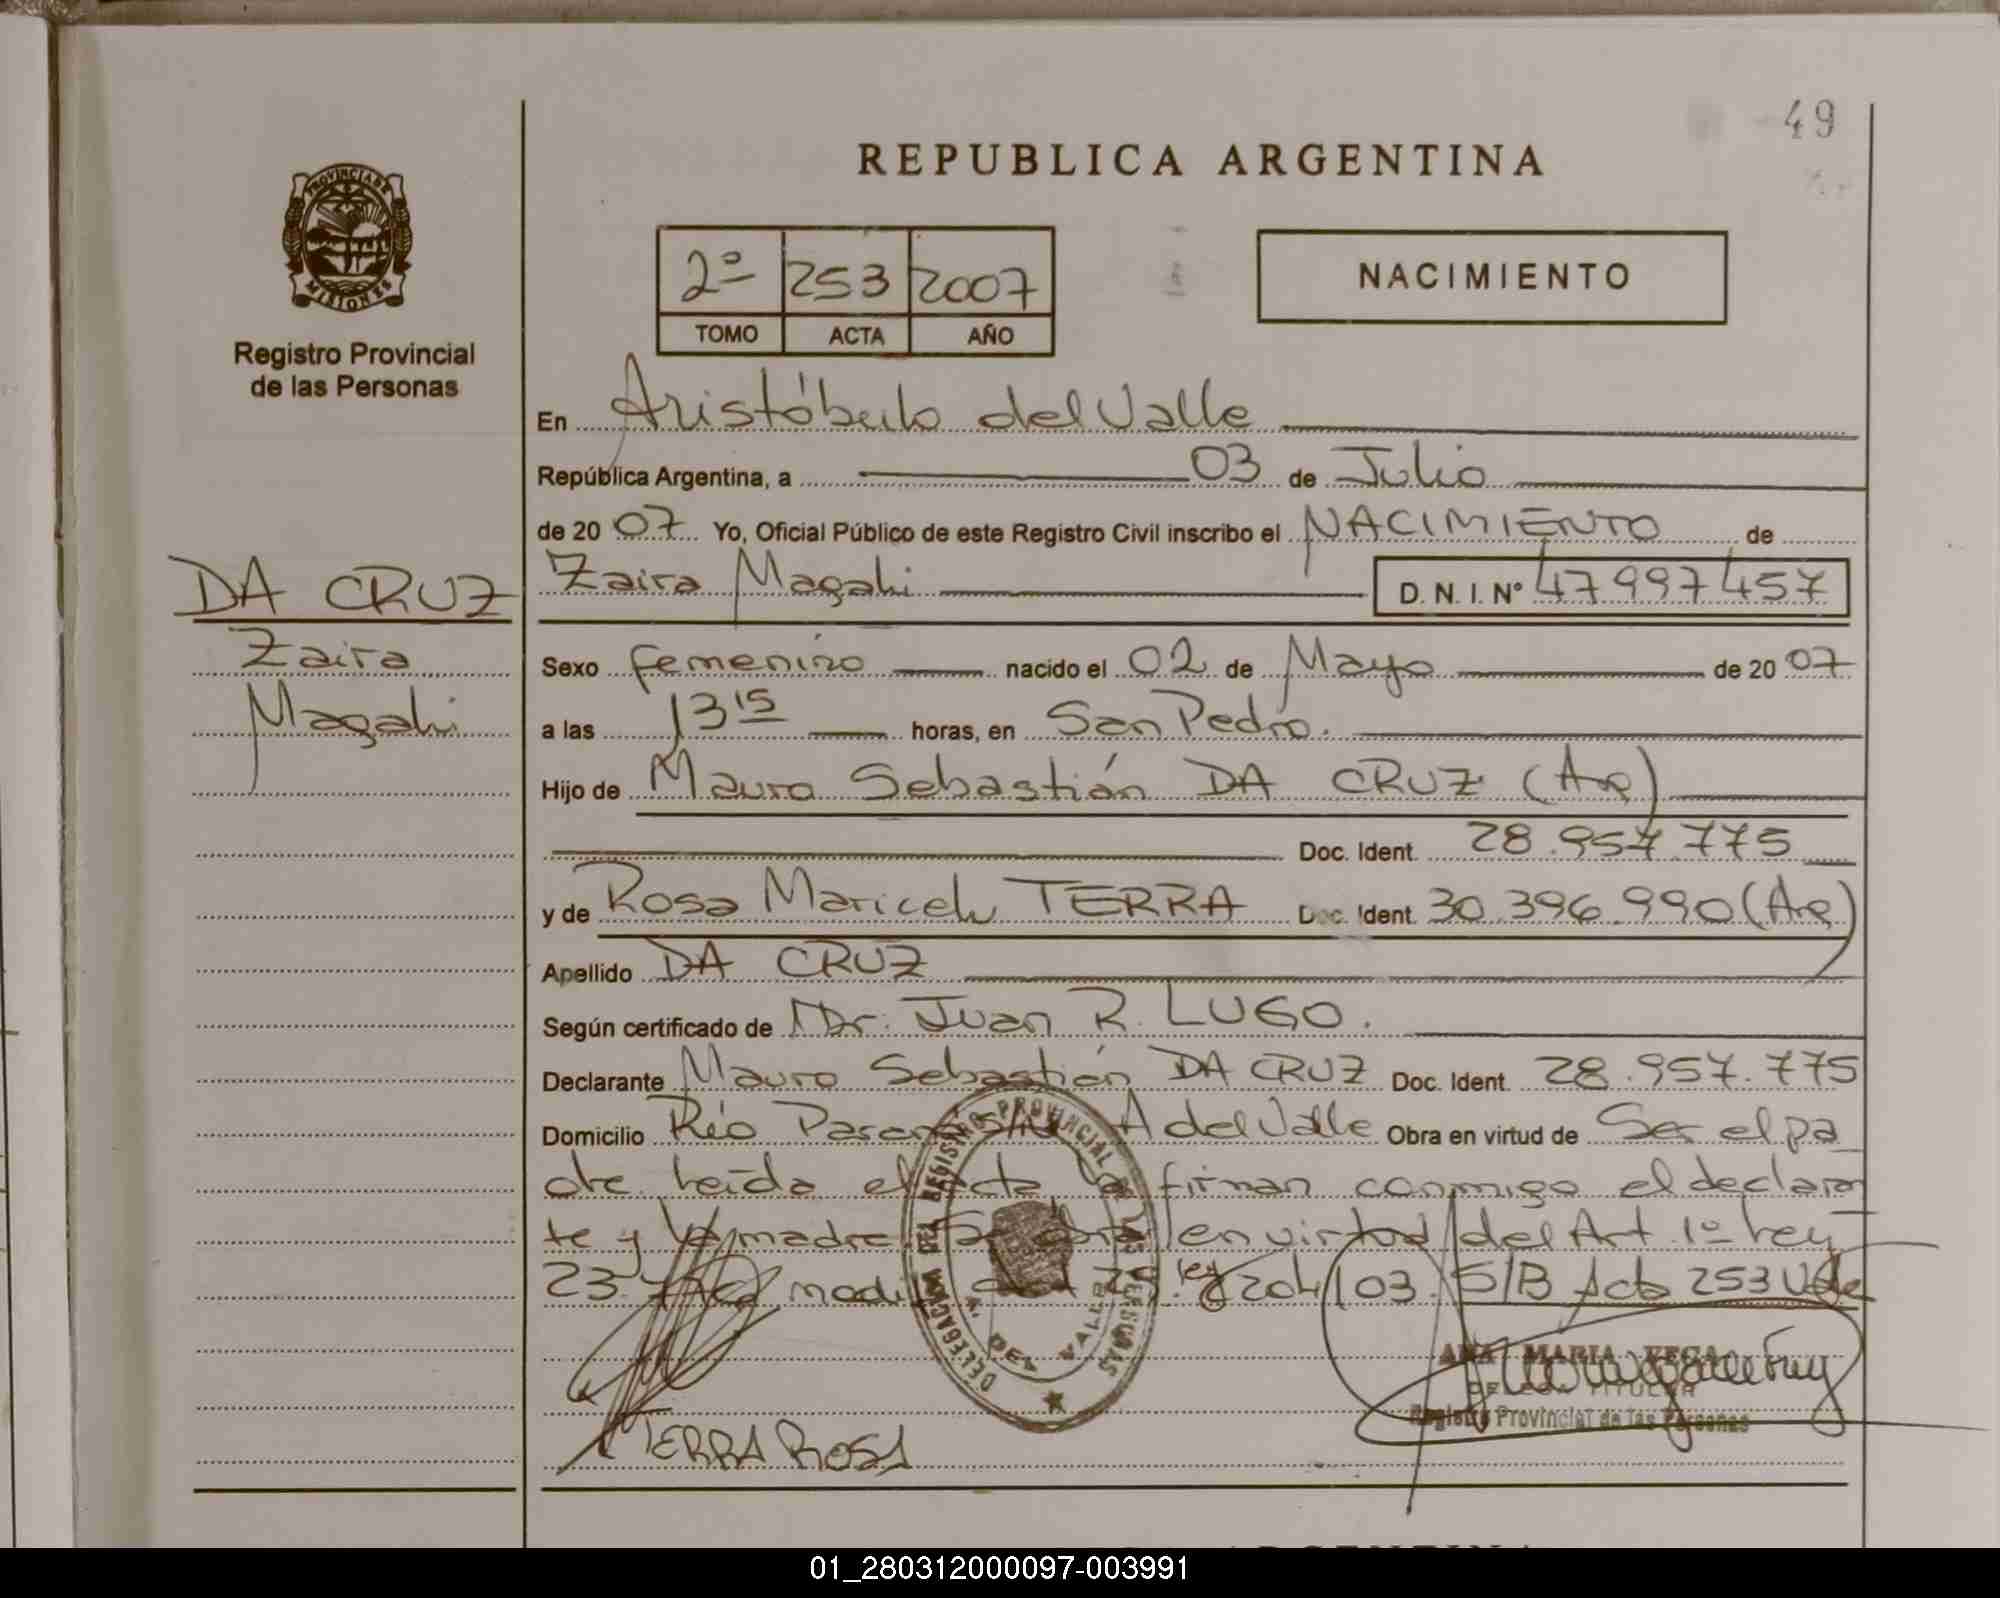 49
REPUBLICA ARGENTINA
PROVINCIA DE
MISIONES
Registro Provincial
de las Personas
2º 253 2007
TOMO ACTA AÑO
NACIMIENTO
En Aristóbulo del Valle
República Argentina, a 03 de Julio
de 2007 Yo, Oficial Público de este Registro Civil inscribo el NACIMIENTO de
DA CRUZ
Zaira
Magali
Zaira Magali D.N.I. Nº 47997457
Sexo femenino nacido el 02 de Mayo de 2007
a las 13 15 horas, en San Pedro.
Hijo de Mauro Sebastián DA CRUZ (Ar)
Doc. Ident. 28.957.775
y de Rosa Maricel TERRA Doc. Ident. 30.396.990 (Ar)
Apellido DA CRUZ
Según certificado de Dr. Juan R. LUGO.
Declarante Mauro Sebastián DA CRUZ Doc. Ident. 28.957.775
Domicilio Río Paraná A del Valle Obra en virtud de Ser el pa
dre leída el acta la firman conmigo el declaran
te y la madre en virtud del Art 1º Ley
23. 204/03. S/B Acta 253 Vale
DELEGACION DEL REGISTRO PROVINCIAL DE LAS PERSONAS
A. DEL VALLE
ANA MARIA VEGA
DELEGADA TITULAR
Registro Provincial de las Personas
TERRA ROSA
01_280312000097-003991